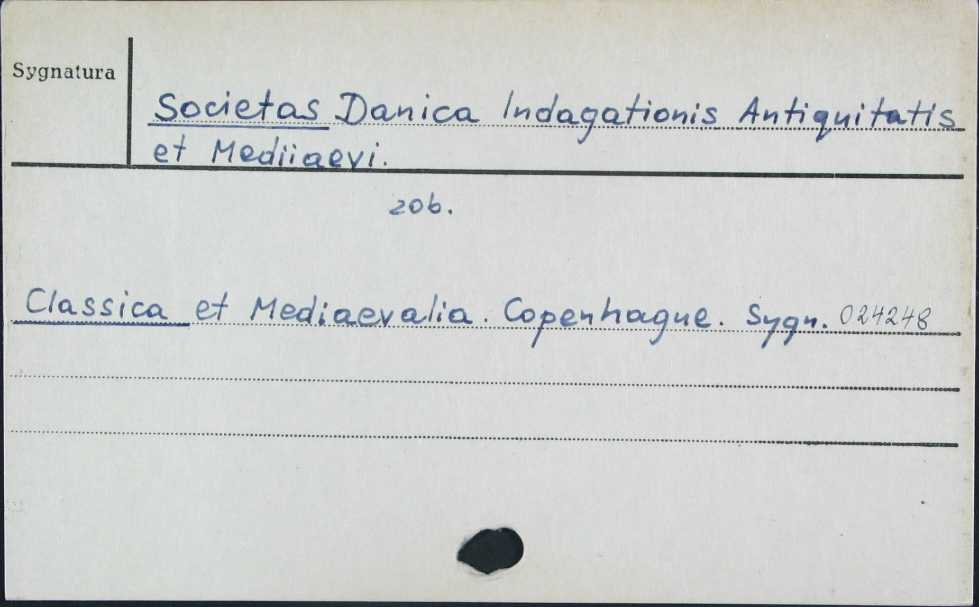 Sygnatura
Societas Danica Indagationis Antiquitatis
et Mediiaevi.
zob.
Classica et Mediaevalia. Copenhague. Sygn. 024248